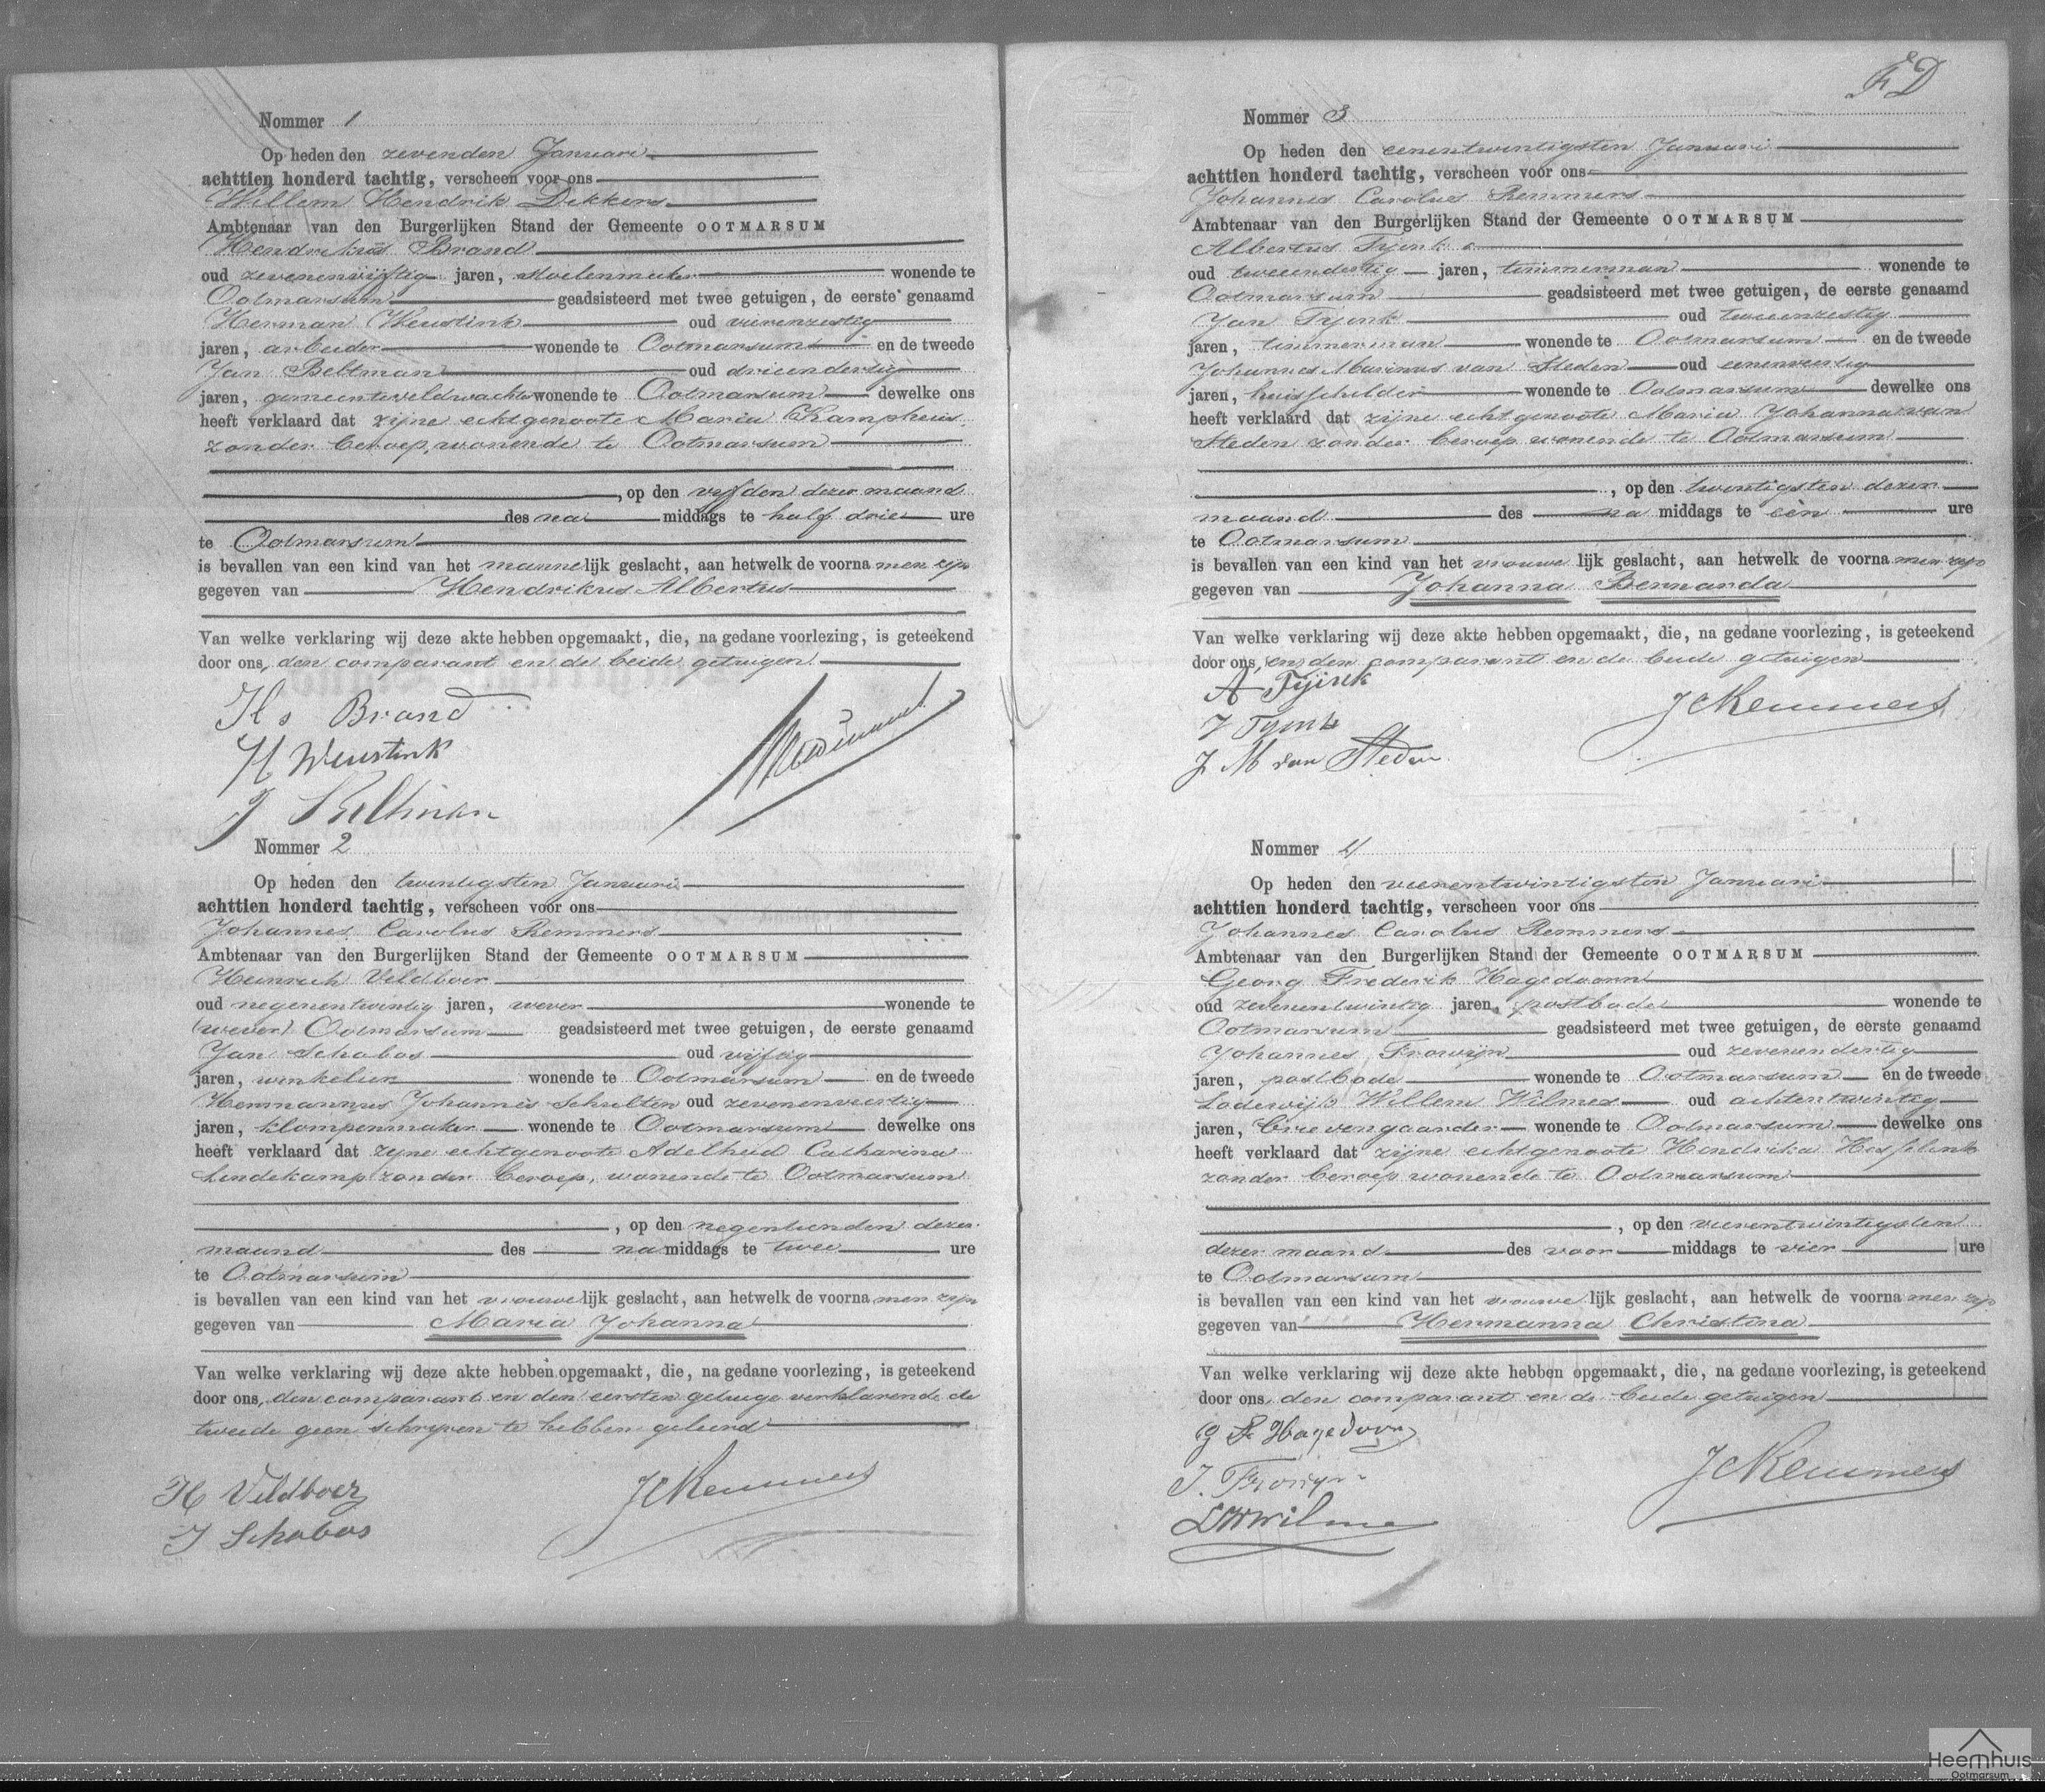 Nommer 1
Op heden den zevenden Januari
achttien honderd tachtig, verscheen voor ons
Willem Hendrik Dekkers
Ambtenaar van den Burgerlijken Stand der Gemeente OOTMARSUM
Hendrikus Brand
oud zevenenvijftig jaren, stoelenmaker wonende te
Ootmarsum geadsisteerd met twee getuigen, de eerste genaamd
Herman Weustink oud vierenzestig
jaren, arbeider wonende te Ootmarsum en de tweede
Jan Beltman oud drieendertig
jaren, gemeenteveldwachter wonende te Ootmarsum dewelke ons
heeft verklaard dat zijne echtgenoote Maria Kamphuis
zonder beroep, wonende te Ootmarsum
, op den vijfden dezer maand
des na middags te half drie ure
te Ootmarsum
is bevallen van een kind van het mannelijk geslacht, aan hetwelk de voornamen zijn
gegeven van Hendrikus Albertus
Van welke verklaring wij deze akte hebben opgemaakt, die, na gedane voorlezing, is geteekend
door ons, den comparant en de beide getuigen.
Hs Brand
H Weustink
J Beltman
Nommer 2
Op heden den twintigsten Januari
achttien honderd tachtig, verscheen voor ons
Johannes Carolus Remmers
Ambtenaar van den Burgerlijken Stand der Gemeente OOTMARSUM
Heinrich Veldboer
oud negenentwintig jaren, wever wonende te
(wever) Ootmarsum geadsisteerd met twee getuigen, de eerste genaamd
Jan Schabos oud vijftig
jaren, winkelier wonende te Ootmarsum en de tweede
Hermannus Johannes Schulten oud zevenenveertig
jaren, klompenmaker wonende te Ootmarsum dewelke ons
heeft verklaard dat zijne echtgenoote Adelheid Catharina
Lendekamp zonder beroep, wonende te Ootmarsum
, op den negentienden dezer
maand des na middags te twee ure
te Ootmarsum
is bevallen van een kind van het vrouwelijk geslacht, aan hetwelk de voornamen zijn
gegeven van Maria Johanna
Van welke verklaring wij deze akte hebben opgemaakt, die, na gedane voorlezing, is geteekend
door ons, den comparant en den eersten getuige verklarende de
tweede geen schrijven te hebben geleerd
H Veldboer
J Schabos
JCRemmers
FD
Nommer 3
Op heden den eenentwintigsten Januari
achttien honderd tachtig, verscheen voor ons
Johannes Carolus Remmers
Ambtenaar van den Burgerlijken Stand der Gemeente OOTMARSUM
Albertus Tyink
oud tweeendertig jaren, timmerman wonende te
Ootmarsum geadsisteerd met twee getuigen, de eerste genaamd
Jan Tyink oud tweeenzestig
jaren, timmerman wonende te Ootmarsum en de tweede
Johannes Marinus van Steden oud eenenveertig
jaren, huisschilder wonende te Ootmarsum dewelke ons
heeft verklaard dat zijne echtgenoote Maria Johanna van
Steden zonder beroep wonende te Ootmarsum
, op den twintigsten dezer
maand des na middags te een ure
te Ootmarsum
is bevallen van een kind van het vrouwelijk geslacht, aan hetwelk de voornamen zijn
gegeven van Johanna Bernanda
Van welke verklaring wij deze akte hebben opgemaakt, die, na gedane voorlezing, is geteekend
door ons, en den comparant en de beide getuigen
A Tyink
J Tyink
J M van Steden
JCRemmers
Nommer 4
Op heden den vierentwintigsten Januari
achttien honderd tachtig, verscheen voor ons
Johannes Carolus Remmers
Ambtenaar van den Burgerlijken Stand der Gemeente OOTMARSUM
Georg Frederik Hagedoorn
oud zevenentwintig jaren, postbode wonende te
Ootmarsum geadsisteerd met twee getuigen, de eerste genaamd
Johannes Frowijn oud zevenendertig
jaren, postbode wonende te Ootmarsum en de tweede
Lodewijk Willem Wilmes oud achtentwintig
jaren, brievengaarder wonende te Ootmarsum dewelke ons
heeft verklaard dat zijne echtgenoote Hendrika Hesselink
zonder beroep wonende te Ootmarsum
, op den vierentwintigsten
dezer maand des voor middags te vier ure
te Ootmarsum
is bevallen van een kind van het vrouwelijk geslacht, aan hetwelk de voornamen zijn
gegeven van Hermanna Christina
Van welke verklaring wij deze akte hebben opgemaakt, die, na gedane voorlezing, is geteekend
door ons, den comparant en de beide getuigen
G F Hagedoorn
J. Frowijn
LWWilmes
JCRemmers
Heemhuis
Ootmarsum